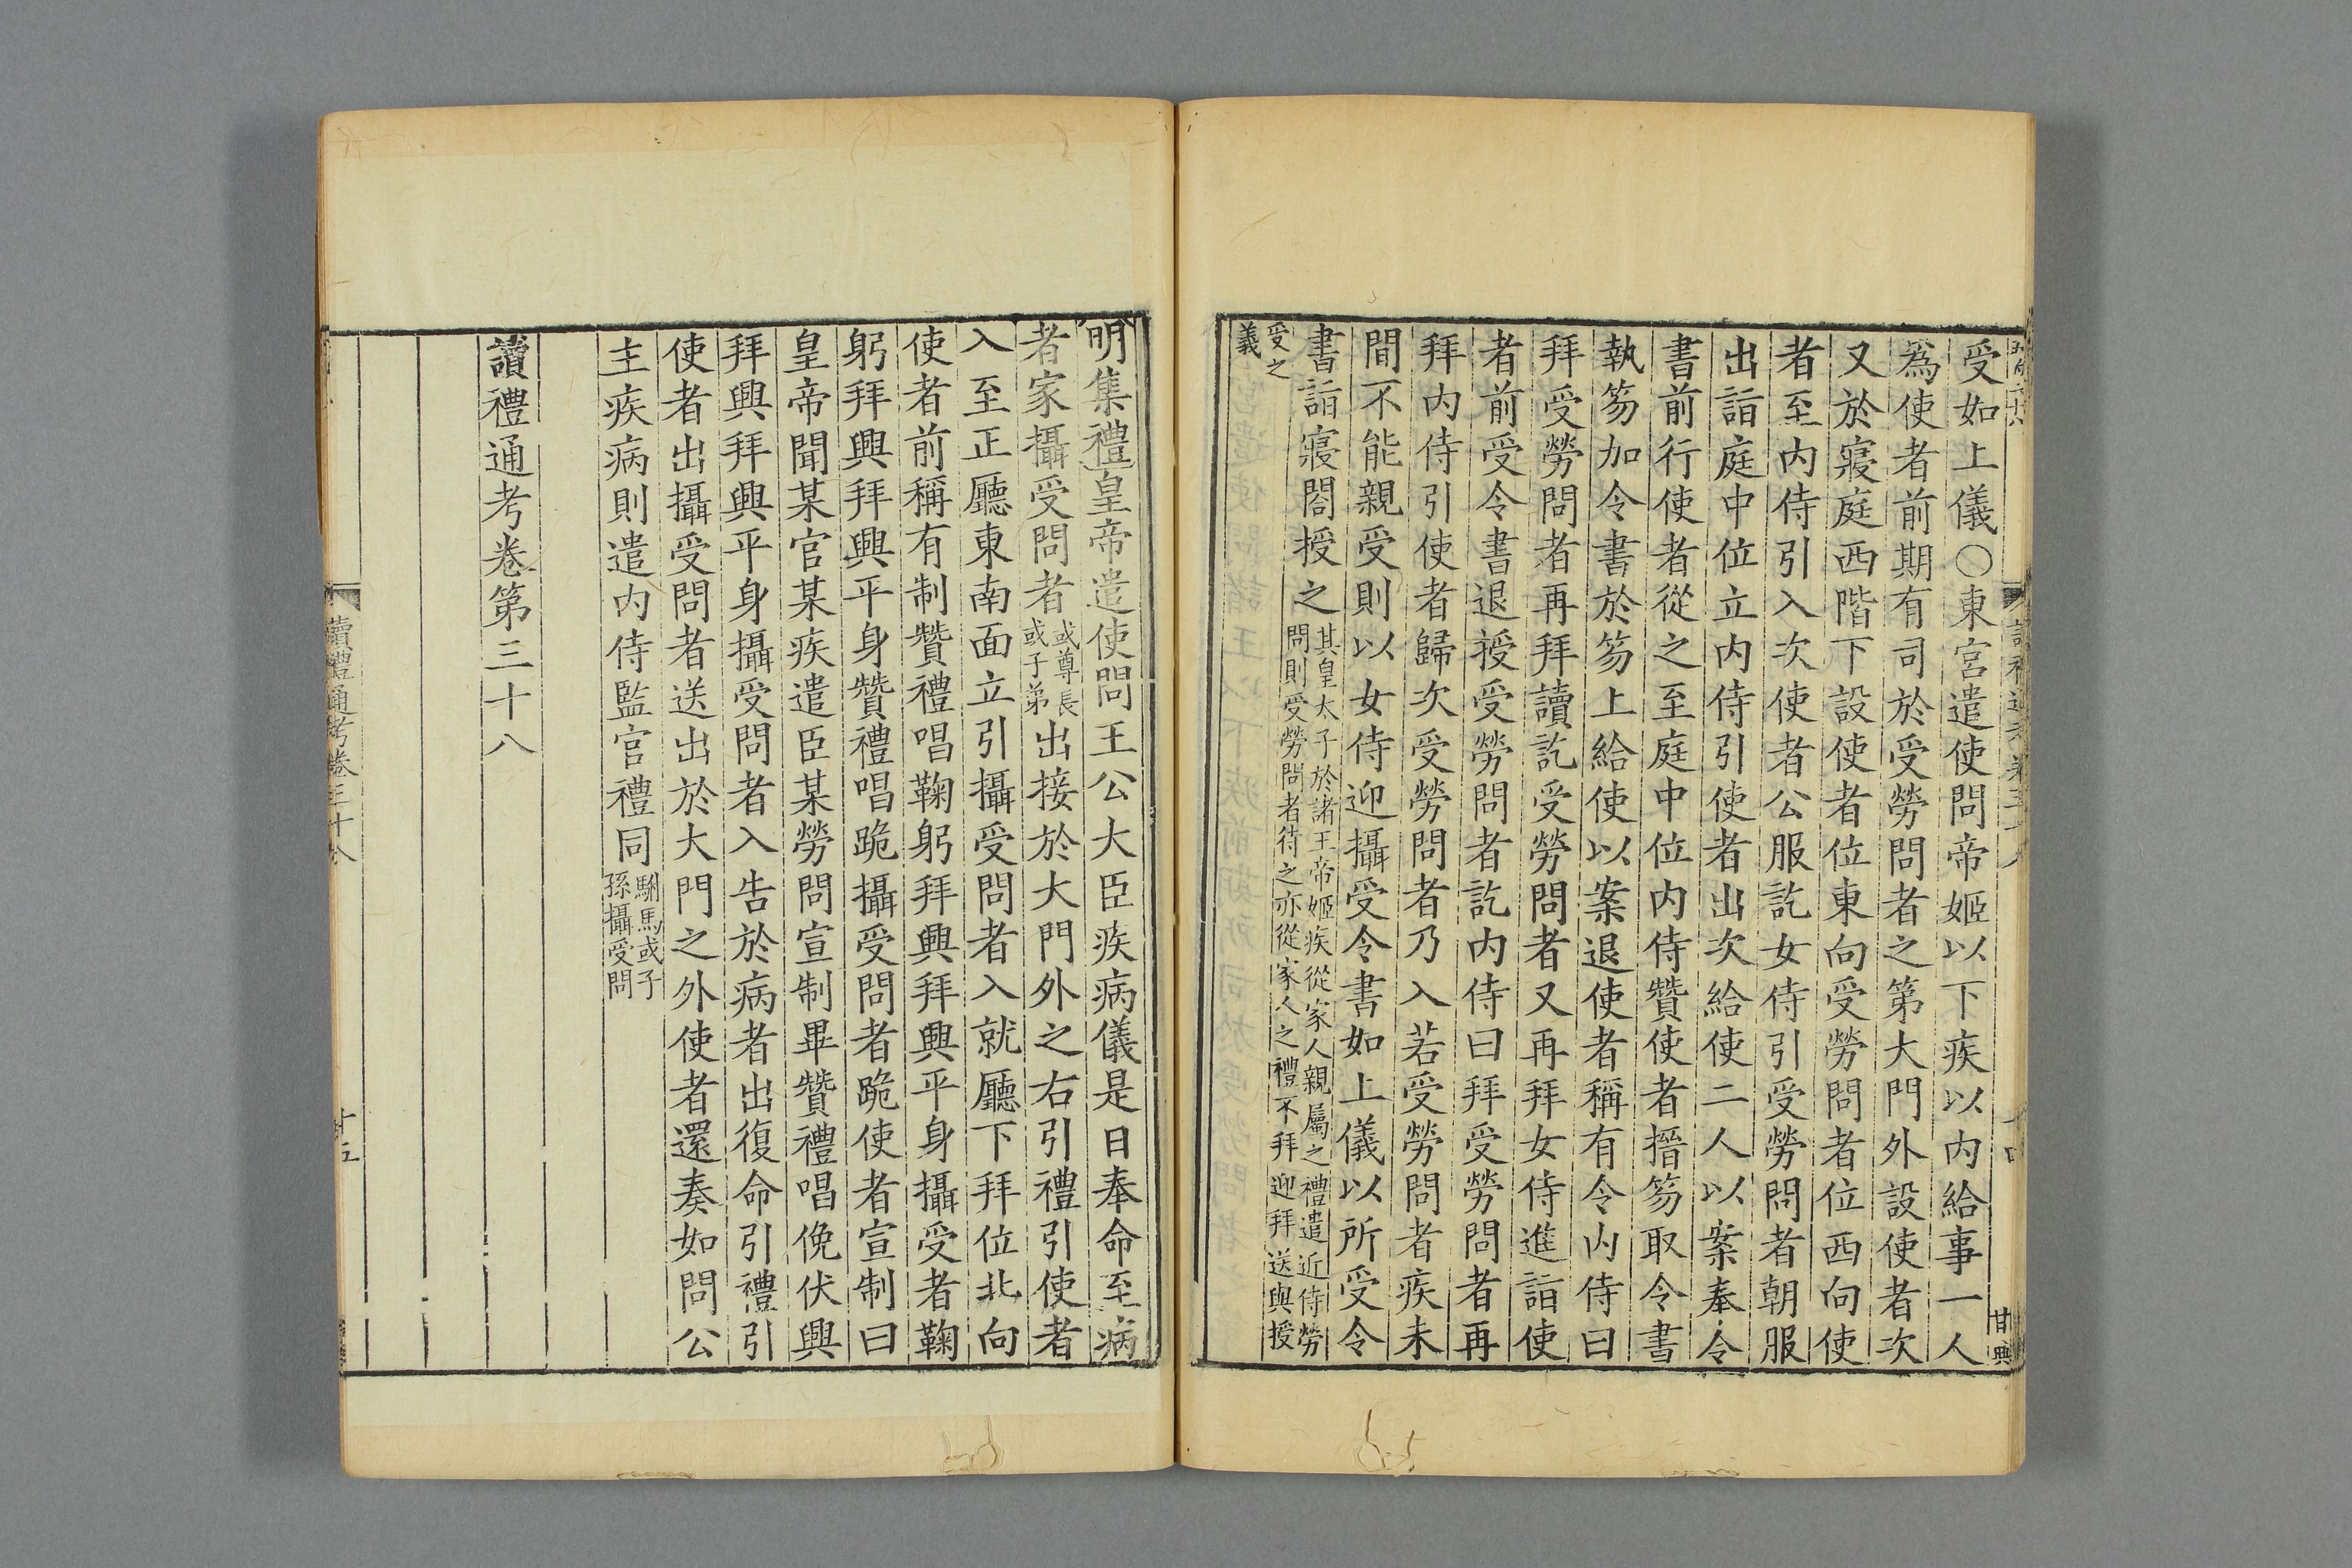 受如上儀〇東宮遣使問帝姬以下疾以内給事一人
爲使者前期有司於受勞問者之第大門外設使者次
又於寢庭西階下設使者位東向受勞問者位西向使
者至内侍引入次使者公服訖女侍引受勞問者朝服
出詣庭中位立内侍引使者出次給使二人以案奉令
書前行使者從之至庭中位内侍贊使者搢笏取令書
執笏加令書於笏上給使以案退使者稱有令内侍曰
拜受勞問者再拜讀訖受勞問者又再拜女侍進詣使
者前受令書退授受勞問者訖内侍曰拜受勞問者再
拜内侍引使者歸次受勞問者乃入若受勞問者疾未
間不能親受則以女侍迎攝受令書如上儀以所受令
書詣寢閤授之
其皇太子於諸王帝姬疾從家人親屬之禮遣近侍勞
問則受勞問者待之亦從家人之禮不拜迎拜送與授
受之
義
甘典
明集禮皇帝遣使問王公大臣疾病儀是日奉命至病
者家攝受問者
或尊長
或子弟
出接於大門外之右引禮引使者
入至正廳東南面立引攝受問者入就廳下拜位北向
使者前稱有制贊禮唱鞠躬拜興拜興平身攝受者鞠
躬拜興拜興平身贊禮唱跪攝受問者跪使者宣制曰
皇帝聞某官某疾遣臣某勞問宣制畢贊禮唱俛伏興
拜興拜興平身攝受問者入告於病者出復命引禮引
使者出攝受問者送出於大門之外使者還奏如問公
主疾病則遣内侍監官禮同
駙馬或子
孫攝受問
讀禮通考卷第三十八
讀禮通考卷三十八
十五